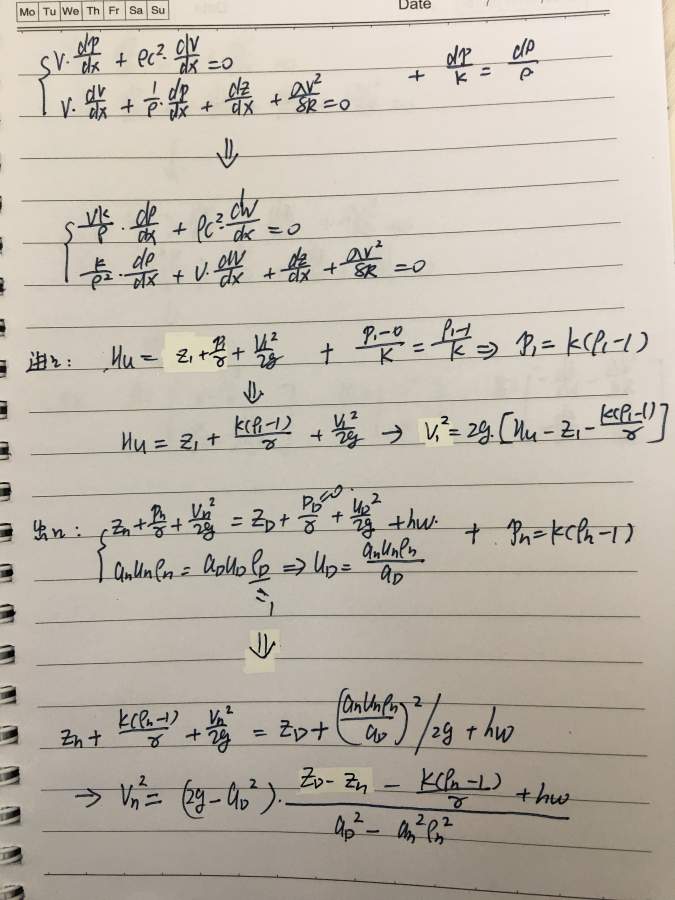 Mo Tu We Th Fr Sa Su
Date
{ V·dp/dx + ρc²·dv/dx = 0
V·dv/dx + 1/ρ·dp/dx + dz/dx + λv²/8R = 0 + dp/k = dρ/ρ
⇓
{ Vk/ρ·dρ/dx + ρc²·dv/dx = 0
k/ρ²·dρ/dx + V·dv/dx + dz/dx + λv²/8R = 0
进口: Hu = z₁ + p₁/r + V₁²/2g + (p₁-0)/K = (ρ₁-1)/K ⇒ p₁ = k(ρ₁-1)
⇓
Hu = z₁ + k(ρ₁-1)/r + V₁²/2g → V₁² = 2g·[Hu - z₁ - k(ρ₁-1)/r]
出口: { zn + pn/r + Vn²/2g = zD + pD=0/r + uD²/2g + hw. + pn = k(ρn-1)
anunρn = aDuDρD ⇒ uD = anunρn/aD
=1
⇓
zn + k(ρn-1)/r + Vn²/2g = zD + (anunρn/aD)²/2g + hw
→ Vn² = (2g-aD²)·(zD - zn - k(ρn-1)/r + hw)/(aD² - an²ρn²)